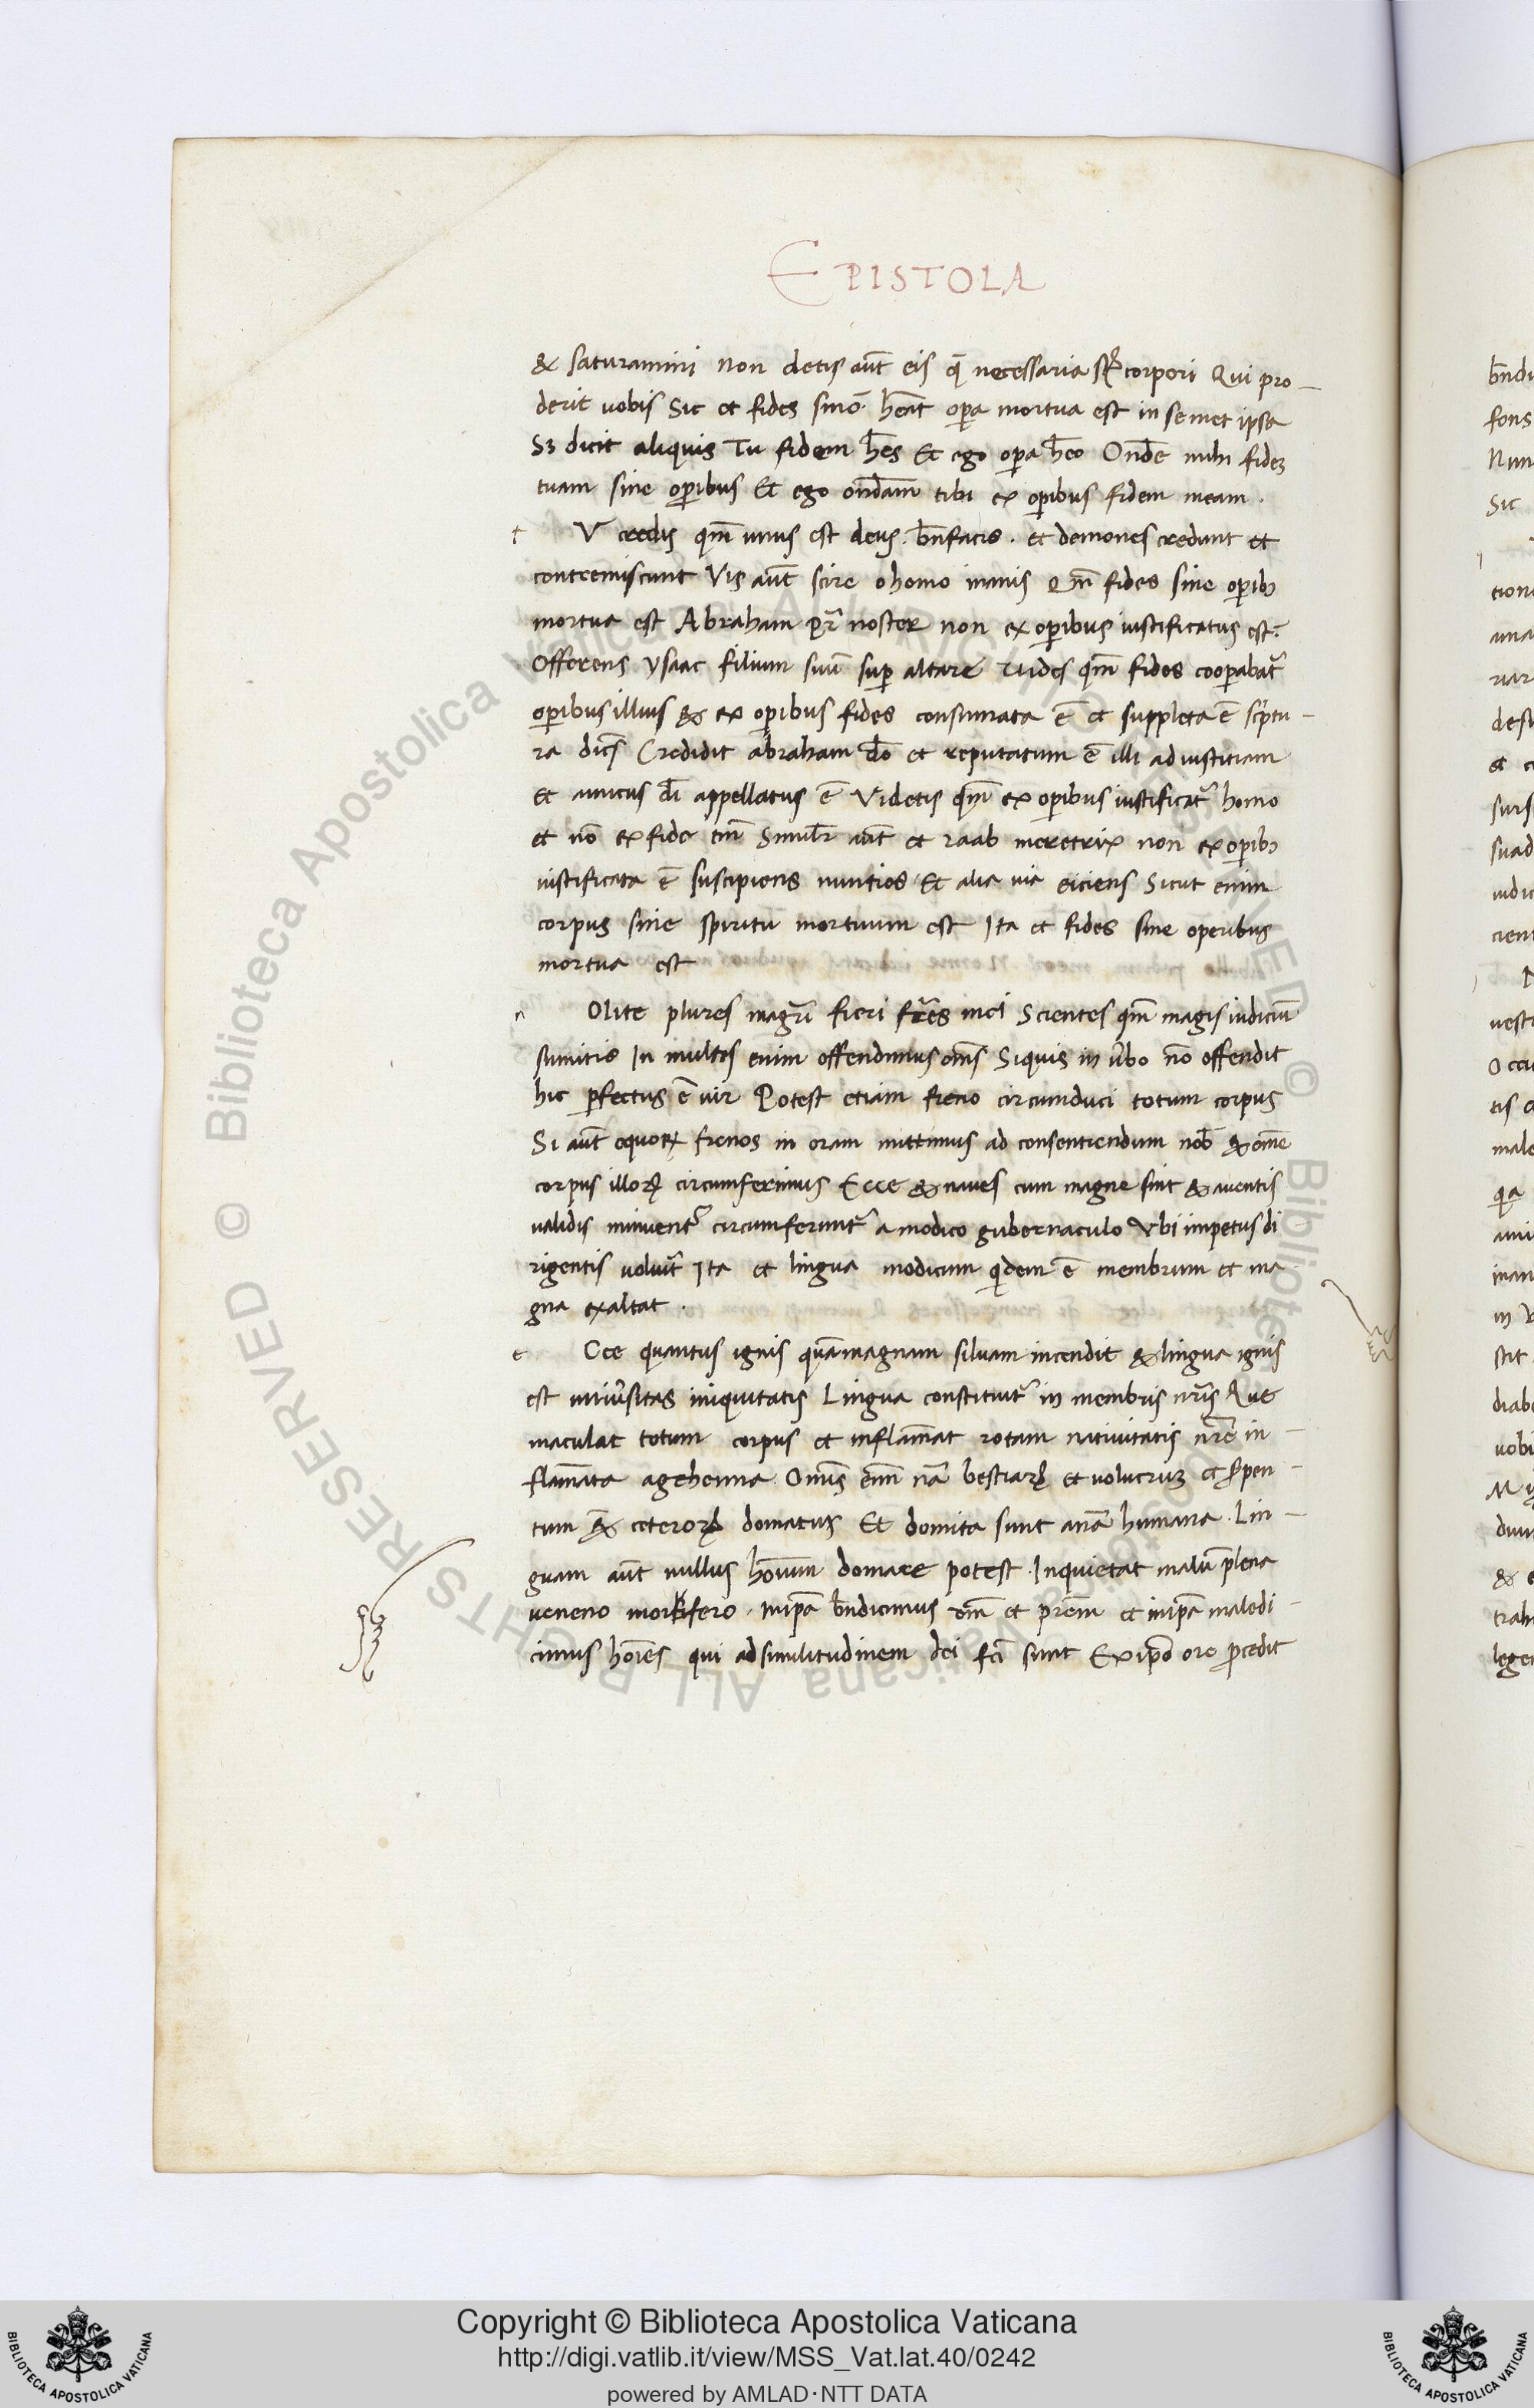 EPISTOLA
& saturamini non detis aut̄ eis q̄ necessaria st̄ corpori Qui pro-
derit uobis Sic et fides si nō heāt oꝑa mortua est in semet ipsa
Sꝫ dicit aliquis Tu fidem hēs Et ego oꝑa hēo Onde mihi fidēꝫ
tuam sine oꝑibus Et ego ondam tibi ex oꝑibus fidem meam.
t V credis qm̄ unus est deus. bn̄ facis. et demones credunt et
contremiscunt Vis aut̄ scire o homo inanis Qm̄ fides sine oꝑibꝫ
mortua est Abraham pr̄ noster non ex oꝑibus iustificatus est?
Offerens ysaac filium suū suꝑ altare Vides qm̄ fides cooꝑabat᷑
oꝑibus illius & ex oꝑibus fides consumata ē et suppleta ē sc̄ptu-
ra dicēs Credidit abraham deō et reputatum ē illi ad iustitiam
Et amicus dī appellatus ē Videtis qm̄ ex oꝑibus iustificat᷑ homo
et nō ex fide tm̄ Similr̄ aut̄ et raab meretrix non ex oꝑibꝫ
iustificata ē suscipiens nuntios Et alia uia eiciens Sicut enim
corpus sine spiritu mortuum est Ita et fides sine operibus
mortua est
n Olite plures magr̄i fieri fr̄es mei Scientes qm̄ magis iudiciū
sumitis In multis enim offendimus om̄s Siquis in ūbo nō offendit
hic ꝑfectus ē uir Potest etiam freno circumduci totum corpus
Si aut̄ equoꝝ frenos in oram mittimus ad consentiendum nob̄ & om̄e
corpus illoꝝ circumferimus Ecce & naues cum magne sint & auentis
ualidis minuent᷑ circumferunt᷑ a modico gubernaculo Vbi impetus di
rigentis uoluit᷑ Ita et lingua modicum qidem ē membrum et ma
gna exaltat.
e Cce quantus ignis quā magnam siluam incendit & lingua ignis
est uniūsitas iniquitatis Lingua constituit᷑ in membris nr̄is Que
maculat totum corpus et inflam̄at rotam natiuitatis nr̄e in-
flam̄ata agehenna Omīs em̄ nā bestiaꝝ et uolucruꝫ et sꝑpen-
tum & ceteroꝝ domatuꝫ Et domita sunt anā humana. Lin-
guam aut̄ nullus hoīum domare potest. Inquietat malū plena
ueneno mortifero. in ip̄a bn̄dicimus dm̄ et prēm et in ip̄a maledi-
cimus hoīes qui ad similitudinem dei fci sunt Ex ip̄o ore ꝓcedit
Copyright © Biblioteca Apostolica Vaticana
http://digi.vatlib.it/view/MSS_Vat.lat.40/0242
powered by AMLAD·NTT DATA